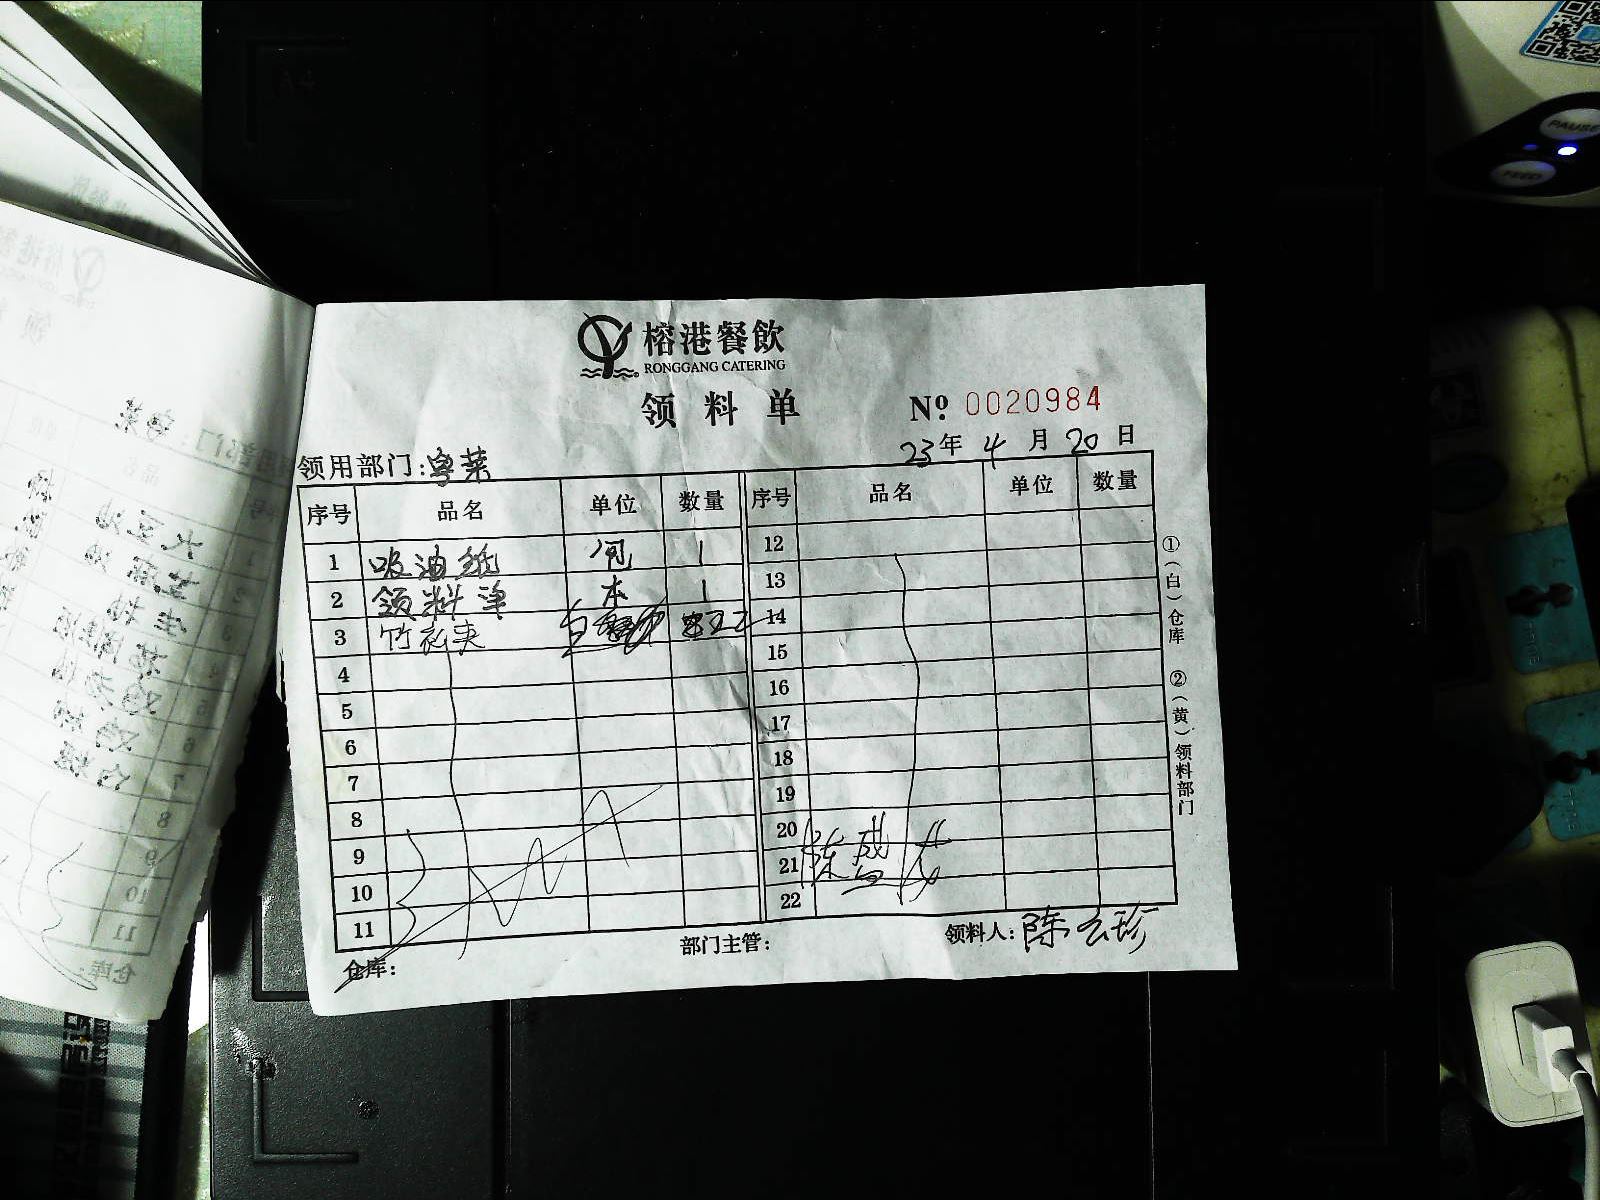 榕港餐飲
RONGGANG CATERING
领料单
Nº 0020984
23年4月20日
领用部门:粤菜
序号 品名 单位 数量 序号 品名 单位 数量
1 吸油纸 1 12
2 领料单 本 1 13
3 竹花夹 14
4 15
5 16
6 17
7 18
8 19
9 20
10 21
11 22
陈盛
①(白)仓库 ②(黄)领料部门
仓库: 部门主管: 领料人:陈云珍
PAUSE
FEED